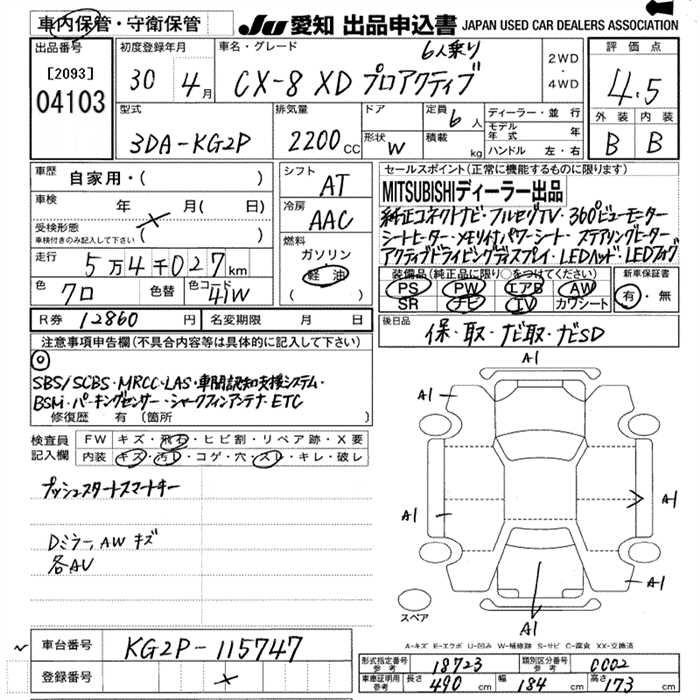 車内保管・守衛保管
JU 愛知 出品申込書 JAPAN USED CAR DEALERS ASSOCIATION
出品番号
[2093]
04103
初度登録年月
30 4月
車名・グレード
6人乗り
CX-8 XD プロアクティブ
2WD
・
4WD
評価点
4.5
外装 内装
B B
型式
3DA-KG2P
排気量
2200CC
ドア
形状 W
定員 6人
積載 kg
ディーラー・並行
モデル年式 年
ハンドル 左・右
車歴 自家用・( )
車検 年 月( 日)
受検形態
車検付きのみ記入して下さい ( )
×
走行 5万4千027km
色 クロ 色替 色コード 41W
シフト AT
冷房 AAC
燃料
ガソリン
軽油
( )
セールスポイント(正常に機能するものに限ります)
MITSUBISHIディーラー出品
純正コネクトナビ・フルセグTV・360°ビューモニター
シートヒーター・メモリ付パワーシート・ステアリングヒーター
アクティブドライビングディスプレイ・LEDヘッド・LEDフォグ
装備品(純正品に限り○をつけてください)
PS PW エアB AW
SR ナビ TV カワシート
新車保証書
有・無
R券 12860円 名変期限 月 日
後日品 保・取・ナビ取・ナビSD
注意事項申告欄(不具合内容等は具体的に記入して下さい)
◎
SBS/SCBS・MRCC・LAS・車間認知支援システム・
BSM・パーキングセンサー・シャークフィンアンテナ・ETC
修復歴 有(箇所 )
検査員
記入欄
FW キズ・飛石・ヒビ割・リペア跡・X要
内装 キズ・汚レ・コゲ・穴・スレ・キレ・破レ
プッシュスタートスマートキー
Dミラー,AW キズ
各AU
A1
A1
A1
A1
A1
A1
A1
スペア
A-キズ E-エクボ U-凹み W-補修跡 S-サビ C-腐食 XX-交換済
車台番号 KG2P-115747
登録番号 ×
形式指定番号
参考
18723
類別区分番号
参考
0002
車庫証明用
参考
長さ 490cm 幅 184cm 高さ 173cm